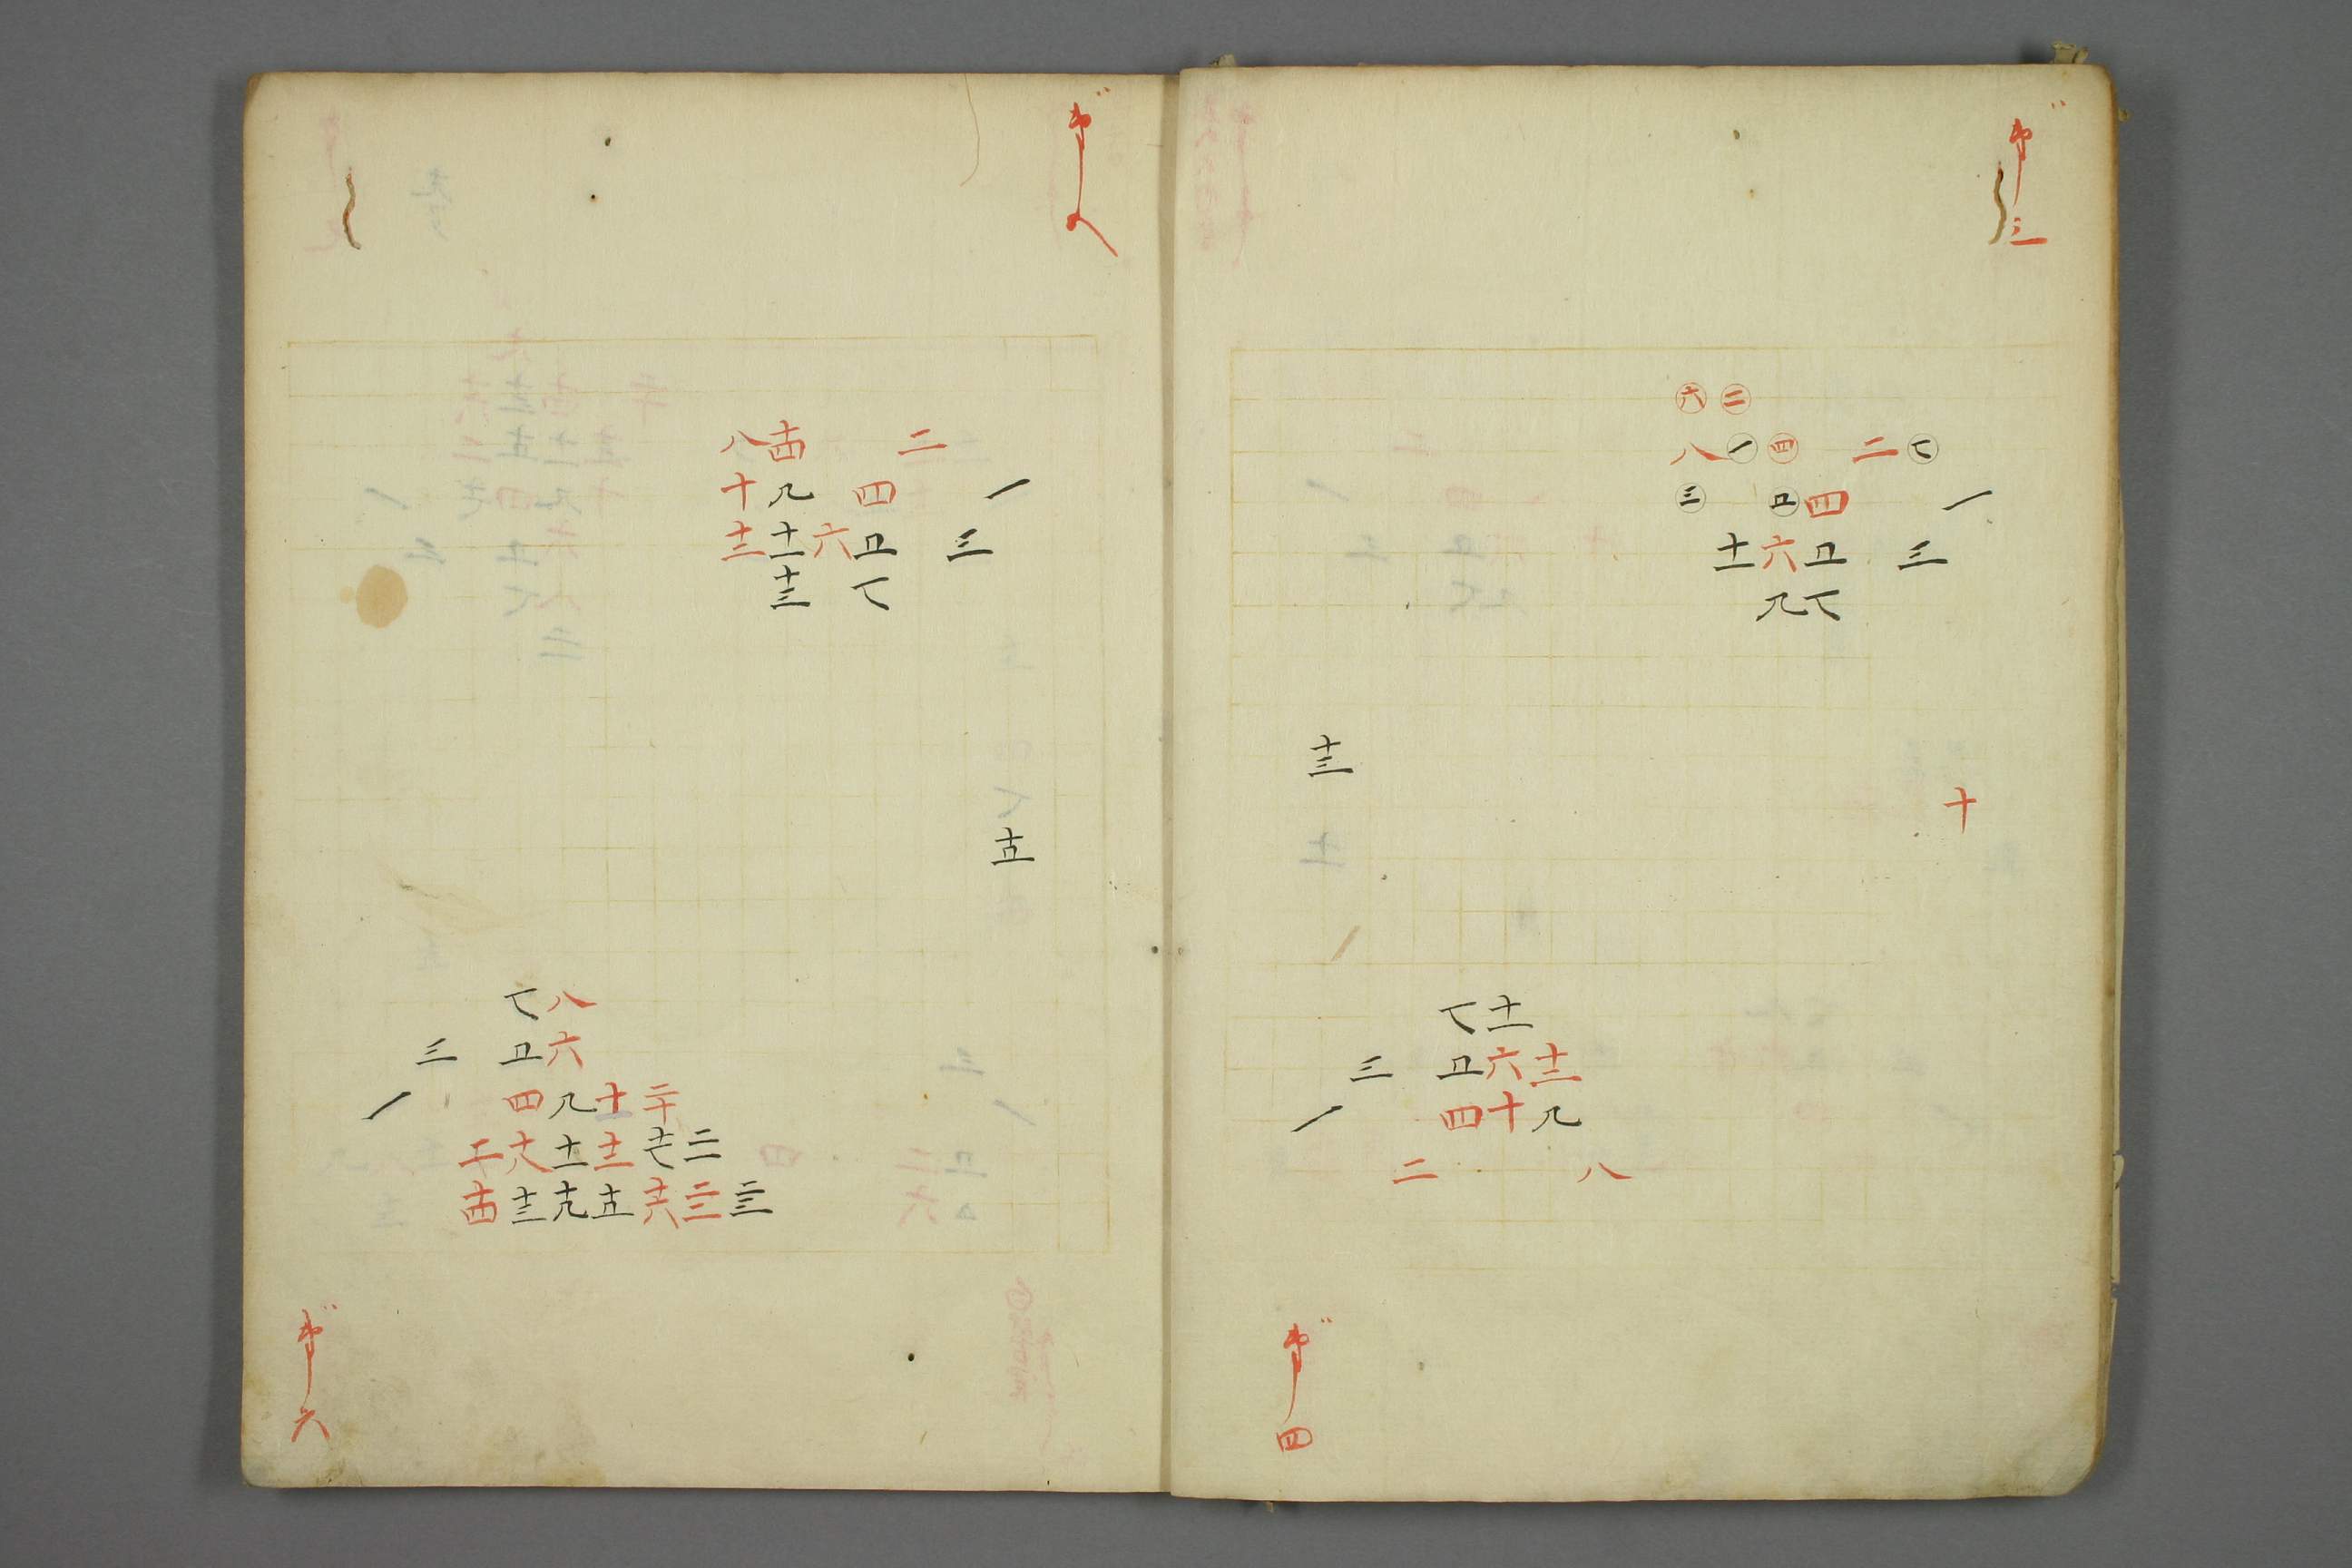 第三
六 二
八 一 四 二 七
三 五 四 一
十一 六 五 三
九 七
十三
十
七 十一
三 五 六 十二
一 四 十 九
二 八
第四
第八
八 十四 二
十 九 四 一
十二 十一 六 五 三
十三 七
十五
七 八
三 五 六
一 四 九 十 二十
十七 二十一
十四 十三 十九 十五 十六 二十二 二十三
第六